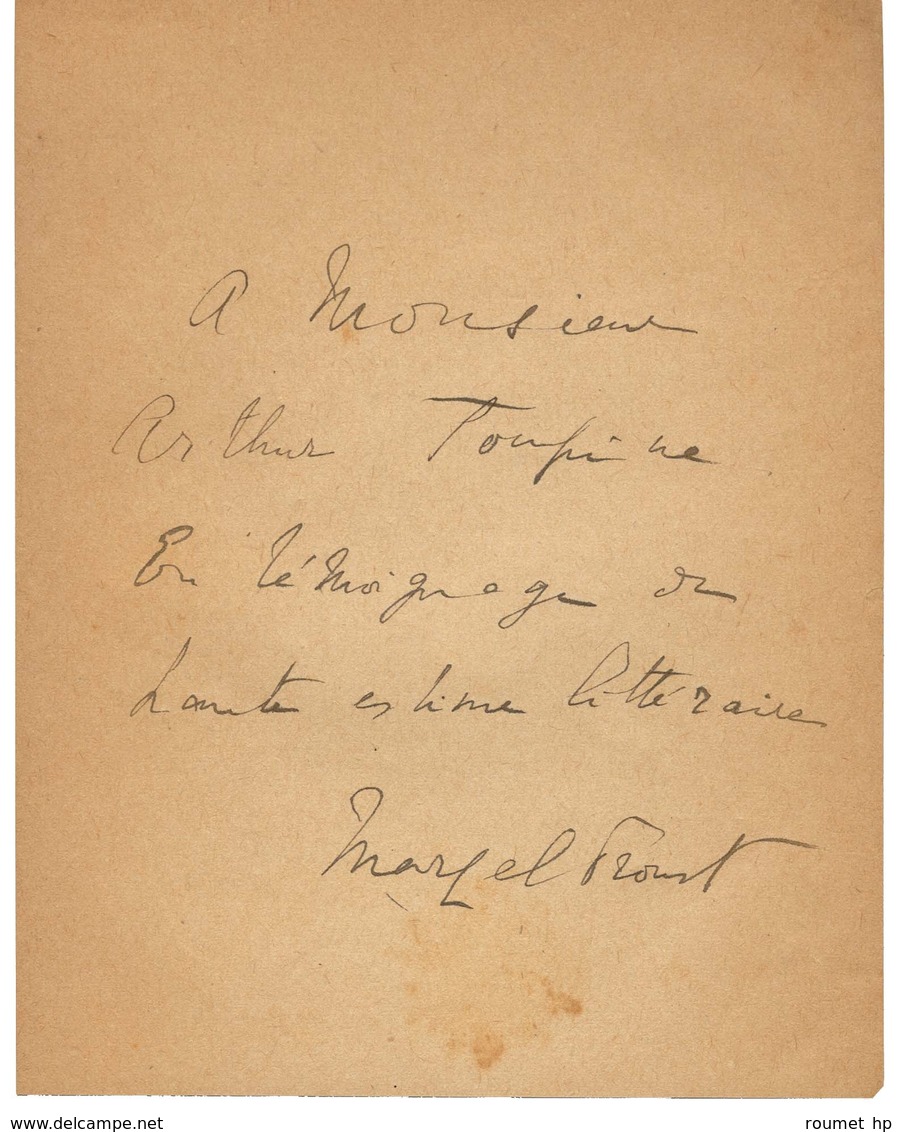 A Monsieur
Arthur Toupine
En témoignage de
haute estime littéraire
Marcel Proust
www.delcampe.net
roumet hp